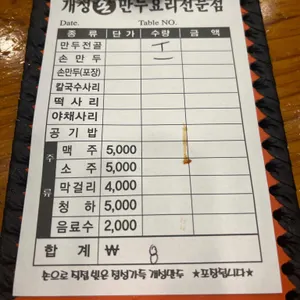 개성 만두요리전문점
Date. Table NO.
종류 단가 수량 금액
만두전골
손만두
손만두(포장)
칼국수사리
떡사리
야채사리
공기밥
주류
맥주 5,000
소주 5,000
막걸리 4,000
청하 5,000
음료수 2,000
합계 ₩ 8
손으로 직접 빚은 개성손만두 ★포장됩니다★